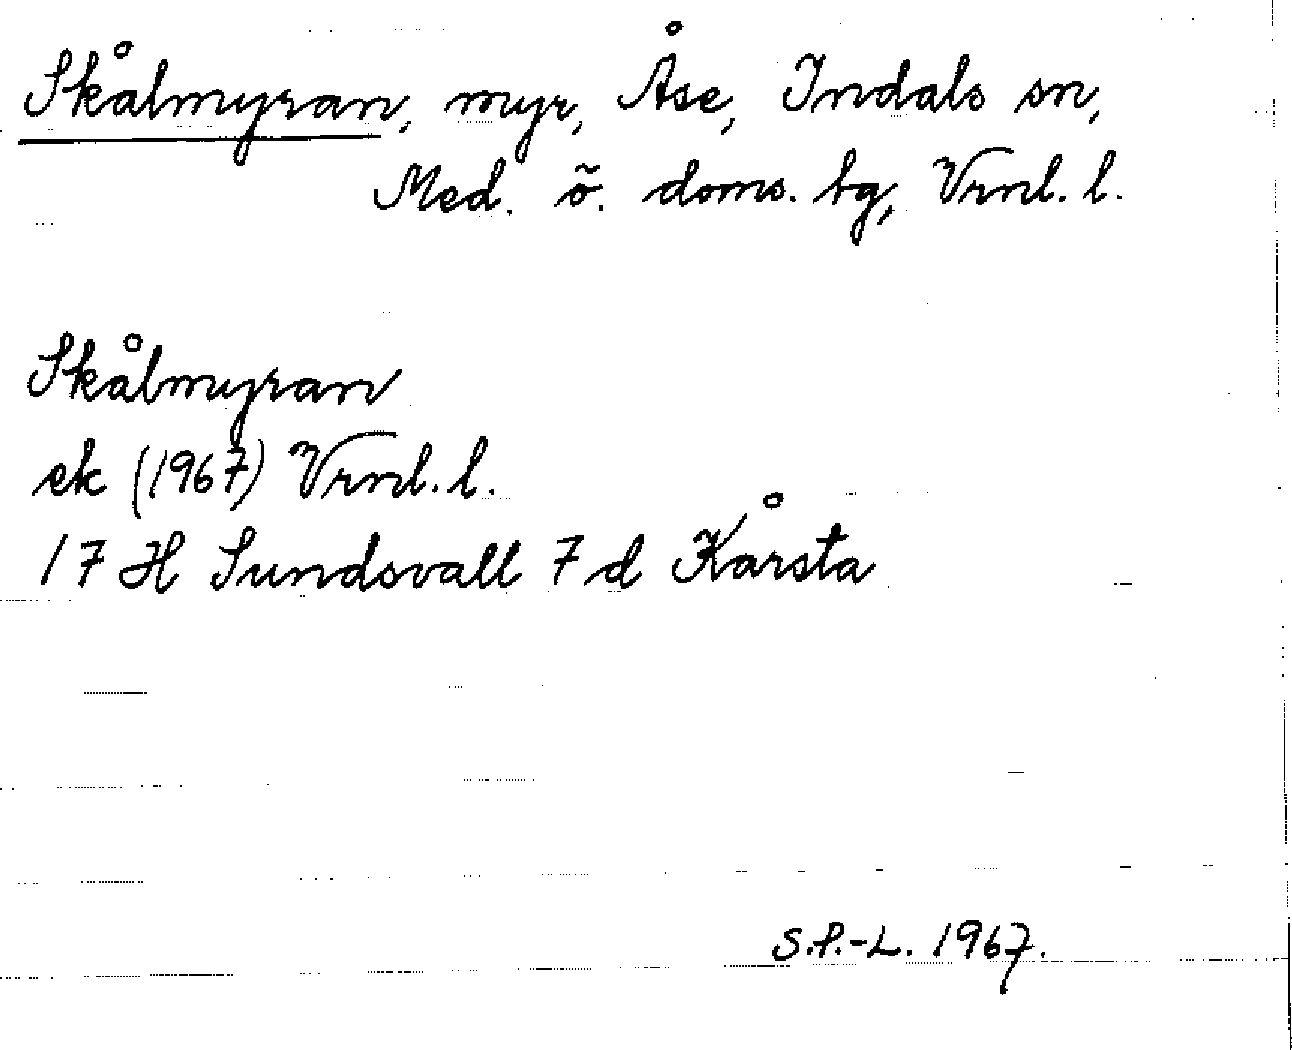 Skålmyran, myr, Åse, Indals sn,
Med. ö. doms. tg, Vrnl. l.
Skålmyran
ek (1967) Vrnl. l.
17 H Sundsvall 7 d Kårsta
S.P.-L. 1967.